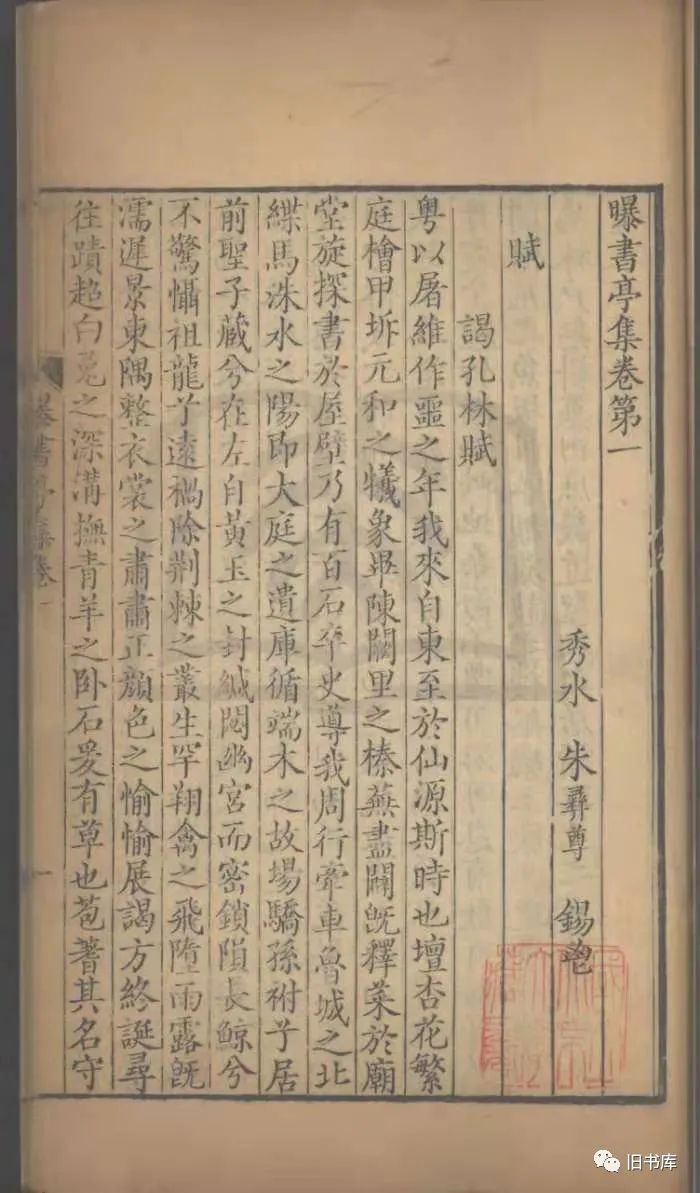 曝書亭集卷第一
秀水 朱彝尊 錫鬯
賦
謁孔林賦
粤以屠維作噩之年我來自東至於仙源斯時也壇杏花繁
庭檜甲坼元和之犧象畢陳闕里之榛蕪盡闢旣釋菜於廟
堂旋探書於屋壁乃有百石卒史導我周行牽車魯城之北
緤馬洙水之陽卽大庭之遺庫循端木之故場驕孫祔子居
前聖子藏兮在左自黃玉之封緘閟幽宮而密鎖隕長鯨兮
不驚懾祖龍兮遠禍除荆棘之叢生罕翔禽之飛墮雨露旣
濡遲景東隅整衣裳之肅肅正顏色之愉愉展謁方終誕尋
往蹟超白兎之深溝撫青羊之卧石爰有草也苞蓍其名守
曝書亭集卷一
一
旧书库